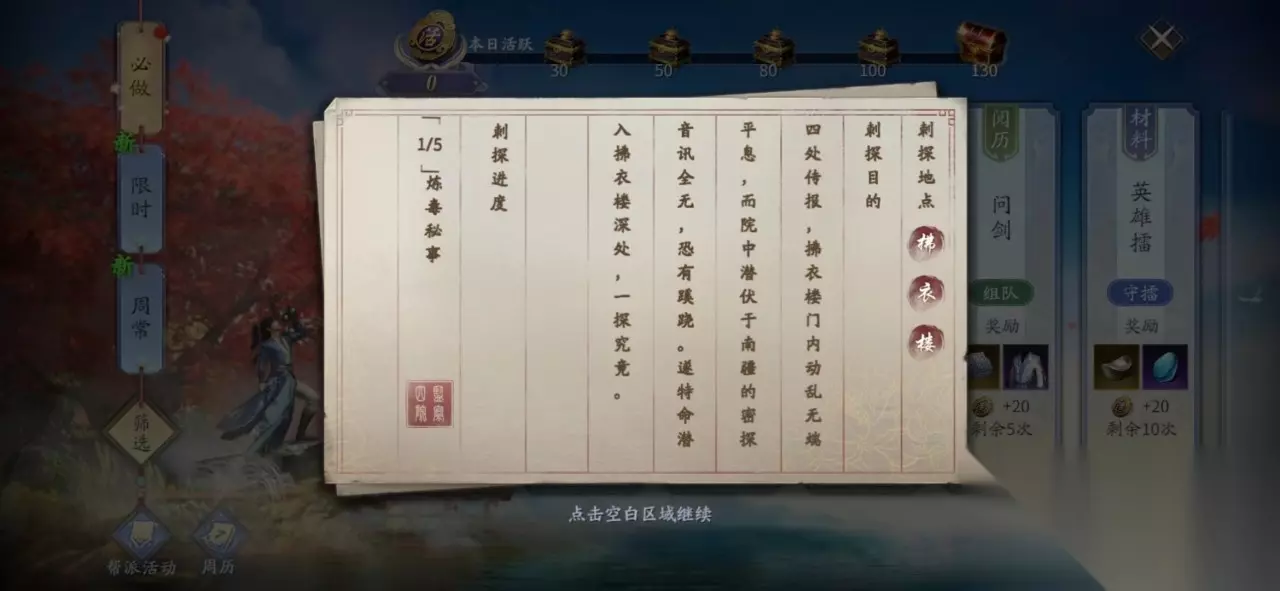 必做
新
限时
新
周常
筛选
帮派活动
周历
活
0
本日活跃
30
50
80
100
130
刺探地点
拂衣楼
刺探目的
四处传报，拂衣楼门内动乱无端
平息，而院中潜伏于南疆的密探
音讯全无，恐有蹊跷。遂特命潜
入拂衣楼深处，一探究竟。
刺探进度
「1/5」炼毒秘事
点击空白区域继续
阅历
问剑
组队
奖励
+20
剩余5次
材料
英雄擂
守擂
奖励
+20
剩余10次